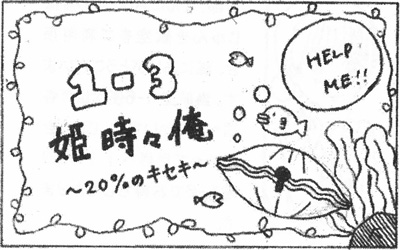 1-3
姫時々俺
～20%のキセキ～
HELP
ME!!